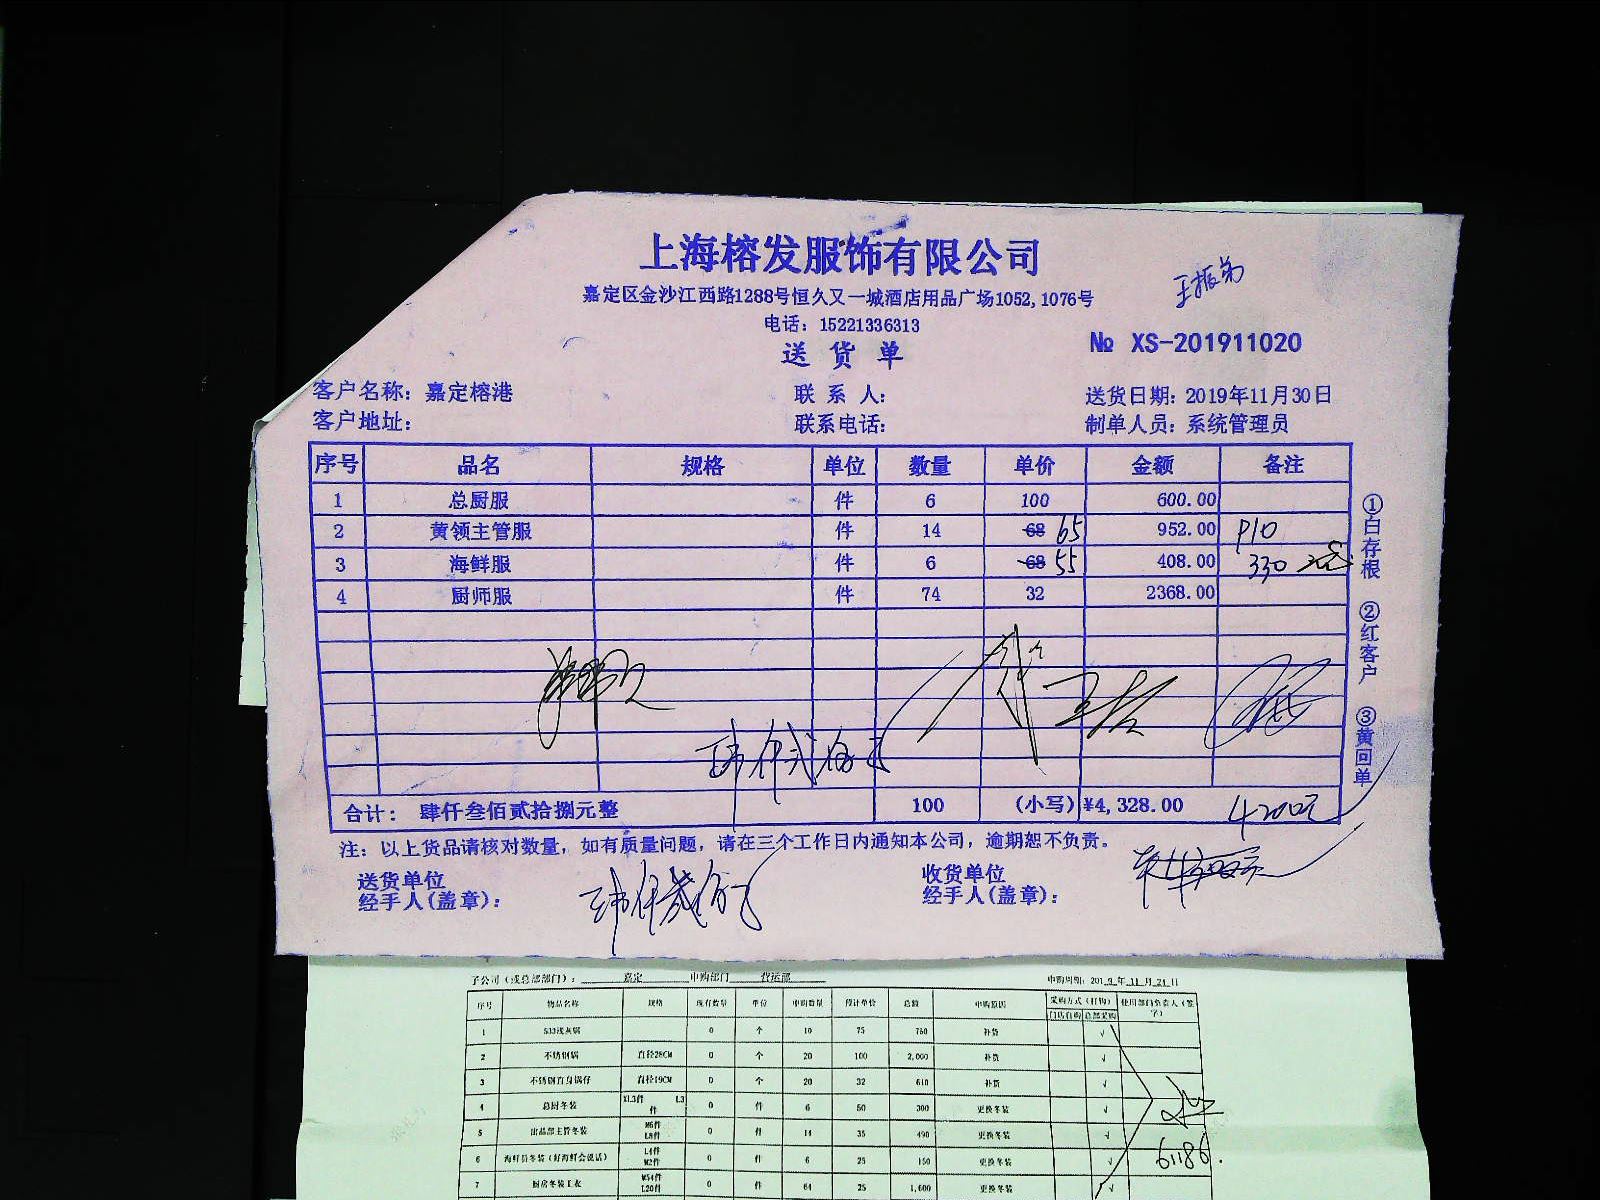 上海榕发服饰有限公司
嘉定区金沙江西路1288号恒久又一城酒店用品广场1052,1076号
王振弟
电话：15221336313
送货单
№ XS-201911020
客户名称：嘉定榕港 联系人： 送货日期：2019年11月30日
客户地址： 联系电话： 制单人员：系统管理员
序号 品名 规格 单位 数量 单价 金额 备注
1 总厨服 件 6 100 600.00
2 黄领主管服 件 14 68 65 952.00 910
3 海鲜服 件 6 68 55 408.00 330元
4 厨师服 件 74 32 2368.00
①白存根 ②红客户 ③黄回单
合计：肆仟叁佰贰拾捌元整 100 (小写) ¥4,328.00 4200元
注：以上货品请核对数量，如有质量问题，请在三个工作日内通知本公司，逾期恕不负责。
送货单位 收货单位
经手人(盖章)： 经手人(盖章)：
子公司（或总部部门）：嘉定 申购部门 营运部 申购周期：2019年11月21日
序号 物品名称 规格 现有数量 单位 申购数量 预计单价 总额 申购原因 采购方式（打钩） 使用部门负责人（签字）
门店自购 总部采购
1 0 个 10 75 750 补货 √
2 不锈钢锅 直径28CM 0 个 20 100 2,000 补货 √
3 不锈钢直身锅仔 直径19CM 0 个 20 32 640 补货 √
4 总厨冬装 XL3件 L3件 0 件 6 50 300 更换冬装 √
5 出品部主管冬装 M6件 L8件 0 件 14 35 490 更换冬装 √
6 海鲜员冬装（好海鲜会说话） L4件 M2件 0 件 6 25 150 更换冬装 √
61186.
7 厨房冬装工衣 L20件 0 件 64 25 1,600 更换冬装 √